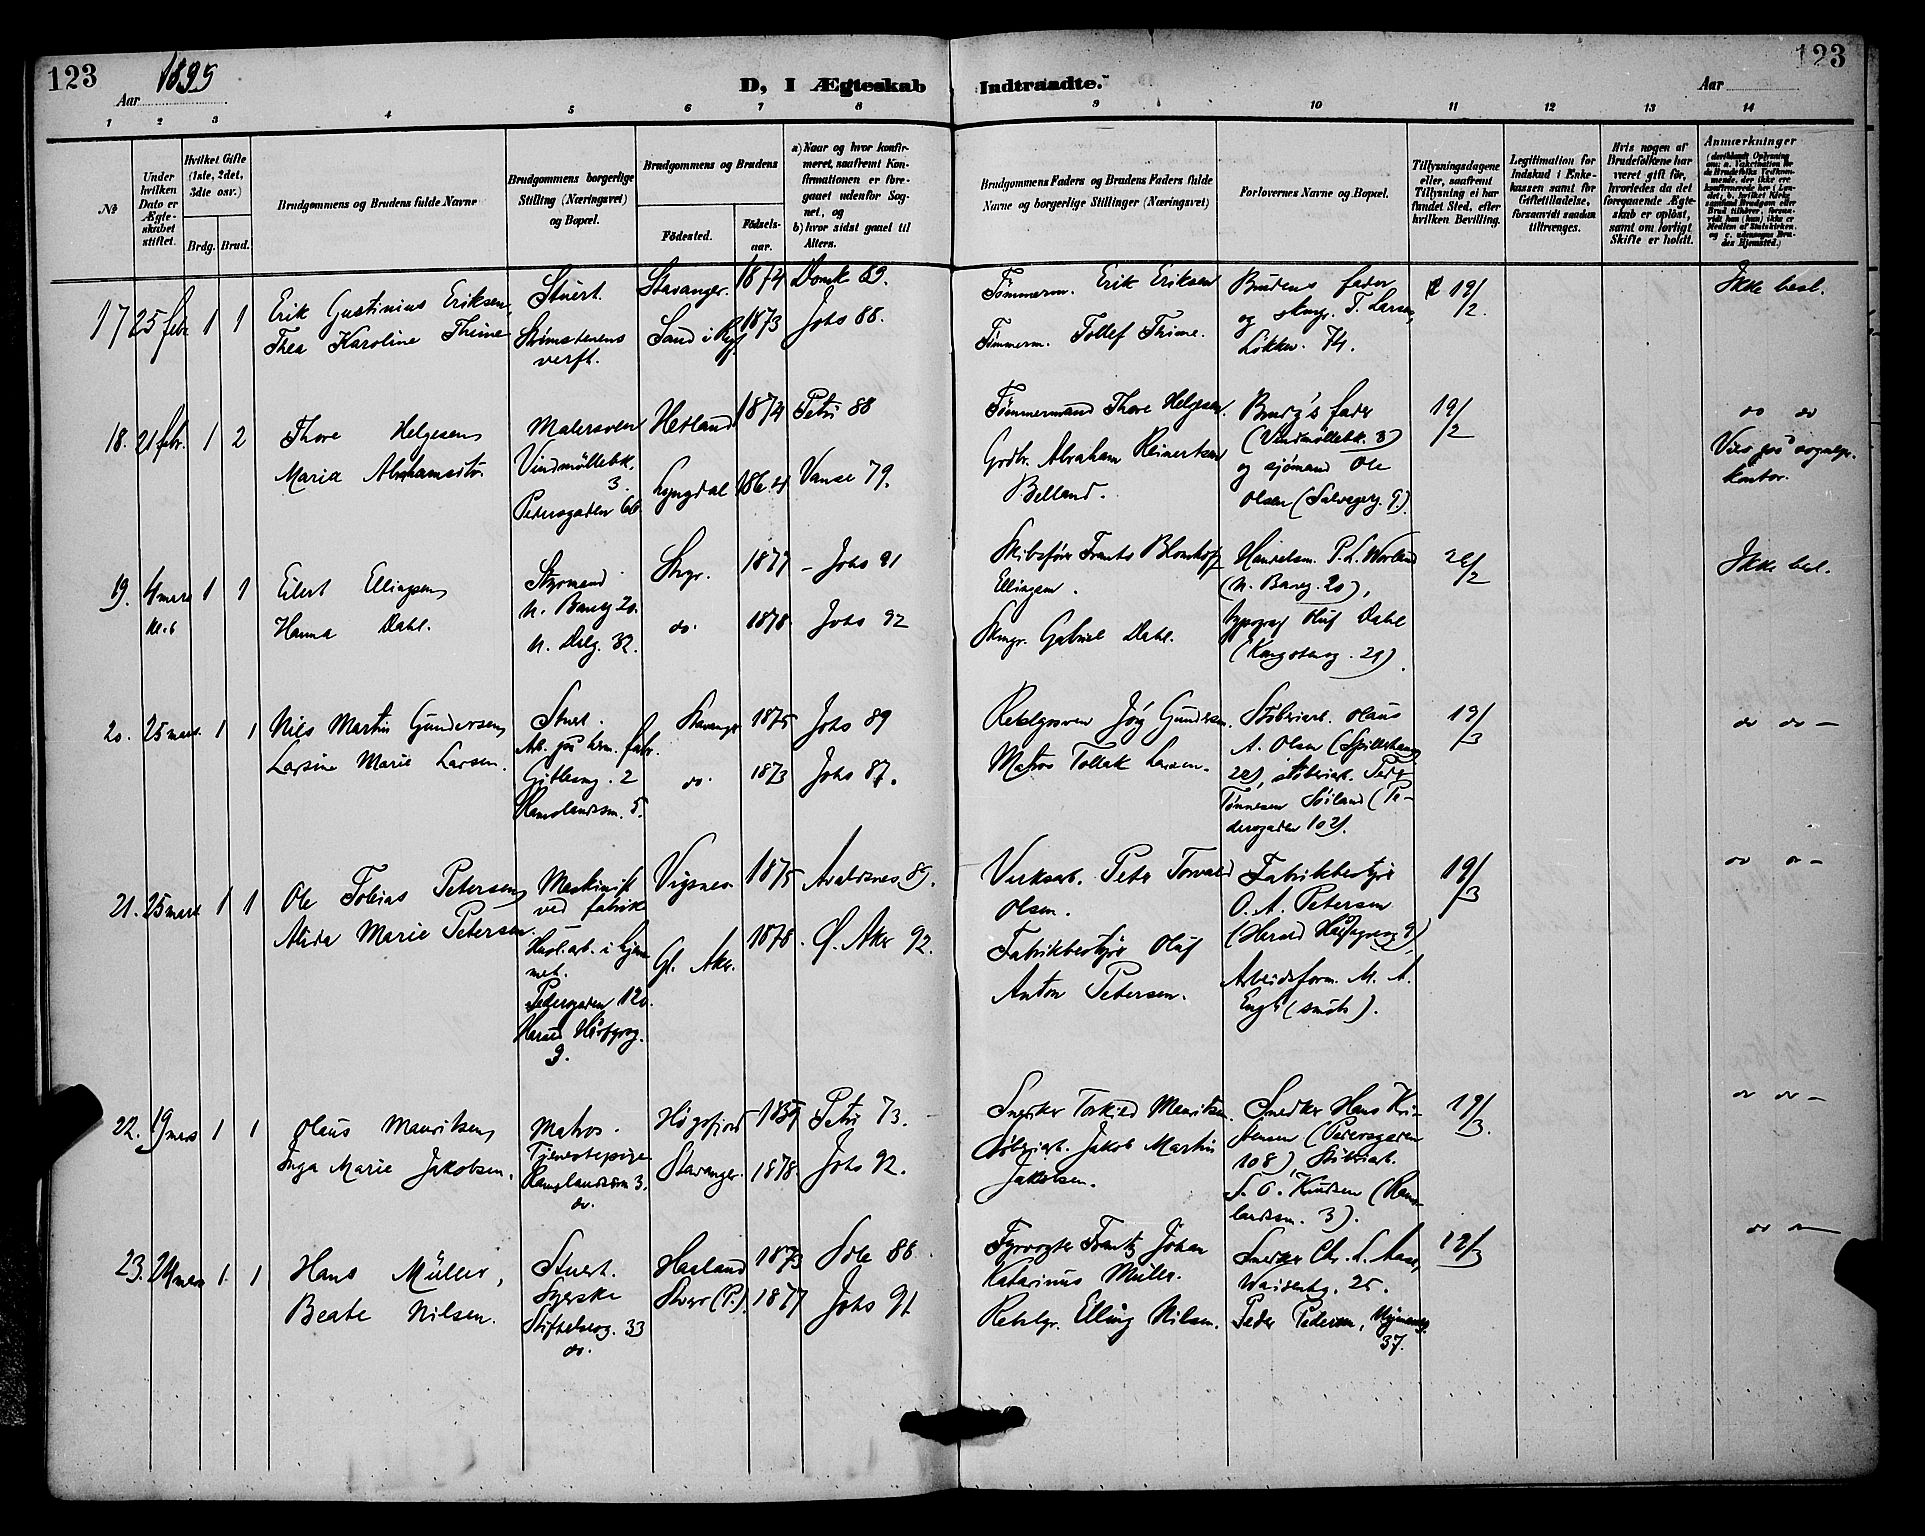 123
Aar 1895
D, I Ægteskab Indtraadte.
Aar
123
1 2 3 4 5 6 7 8 9 10 11 12 13 14
№
Under hvilken Dato er Ægteskabet stiftet.
Hvilket Gifte (1ste, 2det, 3die osv.)
Brdg. Brud.
Brudgommens og Brudens fulde Navne
Brudgommens borgerlige Stilling (Næringsvei) og Bopæl.
Brudgommens og Brudens
Fødested.
Fødselsaar.
a) Naar og hvor konfirmeret, saafremt Konfirmationen er foregaaet udenfor Sognet, og
b) hvor sidst gaaet til Alters.
Brudgommens Faders og Brudens Faders fulde Navne og borgerlige Stillinger (Næringsvei)
Forlovernes Navne og Bopæl.
Tillysningsdagene eller, saafremt Tillysning ei har fundet Sted, efter hvilken Bevilling.
Legitimation for Indskud i Enkekassen samt for Giftetilladelse, forsaavidt saadan tiltrænges.
Hvis nogen af Brudefolkene har været gift før, hvorledes da det foregaaende Ægteskab er opløst, samt om lovligt Skifte er holdt.
Anmærkninger
17 25 febr 1 1
Erik Gustinius Eriksen,
Thea Karoline Thime
Stuert.
Strømstenens
verft.
Stavanger. 1874 Domk 89.
Sand i Ryf 1873 Johs 88.
Tømmerm. Erik Eriksen
Tømmerm. Tollef Thime.
Brudens fader
og skmgr. T. Larsen,
Løkkev. 74.
19/2.
Ikke besl.
18. 21 febr. 1 2
Thore Helgesen
Maria Abrahamsdtr.
Malersven
Vindmøllebk.
3.
Pedersgaden 66
Hetland 1874 Petri 88
Lyngdal 1864 Vanse 79.
Tømmermand Thore Helgesen.
Grdbr. Abraham Reinertsen
Belland.
Brudg's fader
(Vindmøllebk. 3)
og sjømand Ole
Olsen
19/2
do do
kontor.
19. 4 mars 1 1
kl. 6
Eilert Ellingsen
Hanna Dahl.
Styrmand
N. Baneg 20.
N. Dalg. 32.
Stvgr. 1877 - Johs 91
do. 1878. Johs 92
Skibsfører Frants
Ellingsen.
Skmgr. Gabriel Dahl.
Handelsm. P. L.
(N. Baneg. 20),
typograf Oluf Dahl
(Kongsberg. 21).
Ikke besl.
20. 25 mars. 1 1
Nils Martin Gundersen
Larsine Marie Larsen.
Stuert.
Arb. paa herm. fabr.
2
5.
Stavanger 1875 Johs 89
do. 1873 Johs 87.
Rebslgersven Jørg Gundersen.
Matros Tollak Larsen.
Støberiarb. Olaus
A. Olsen
støberiarb. Peder
Tønnesen Søiland (Pe-
dersgaden 102).
19/3
do do —
21. 25 mars 1 1
Ole Tobias Petersen
Alida Marie Petersen.
Maskinist
ved fabrik
Husl. arb. i hjem-
met.
Pedersgaden 120.
Harald Hårfgrsg.
9.
Vigsnes 1875 Avaldsnes 89.
Gl. Aker. 1878. Ø. Aker 92.
Verksarb. Peter Torvald
Olsen.
Fabrikbestyrer Oluf
Anton Petersen.
Fabrikbestyrer
O. A. Petersen
(Harald Hårfagresg 9),
Arbeidsform. M. A.
19/3
do do —
22. 19 mars 1 1
Olaus Mauritsen
Inga Marie Jakobsen.
Matros.
Tjenestepige
Ramslandsm 3.
do.
Høgsfjord Petri 73.
Stavanger. 1878. Johs 92.
Snedker Torkild Mauritsen.
Støberiarb. Jakob Martin
Jakobsen.
Snedker Hans Kri-
stensen (Pedersgaden
108), Støberiarb.
S. O. Knudsen (Rams-
landsm. 3).
19/3.
do do —
23. 24 mars 1 1
Hans Müller,
Beate Nilsen.
Stuert.
Syerske
33
do.
Haaland 1873 Sole 88.
Stvgr (P.). 1877 Johs 91.
Fyrvogter Frantz Johan
Katarinus Müller.
Rebslgr. Elling Nilsen.
Snedker Chr. L. Aase,
25.
Peder Pedersen,
37.
12/3
do —